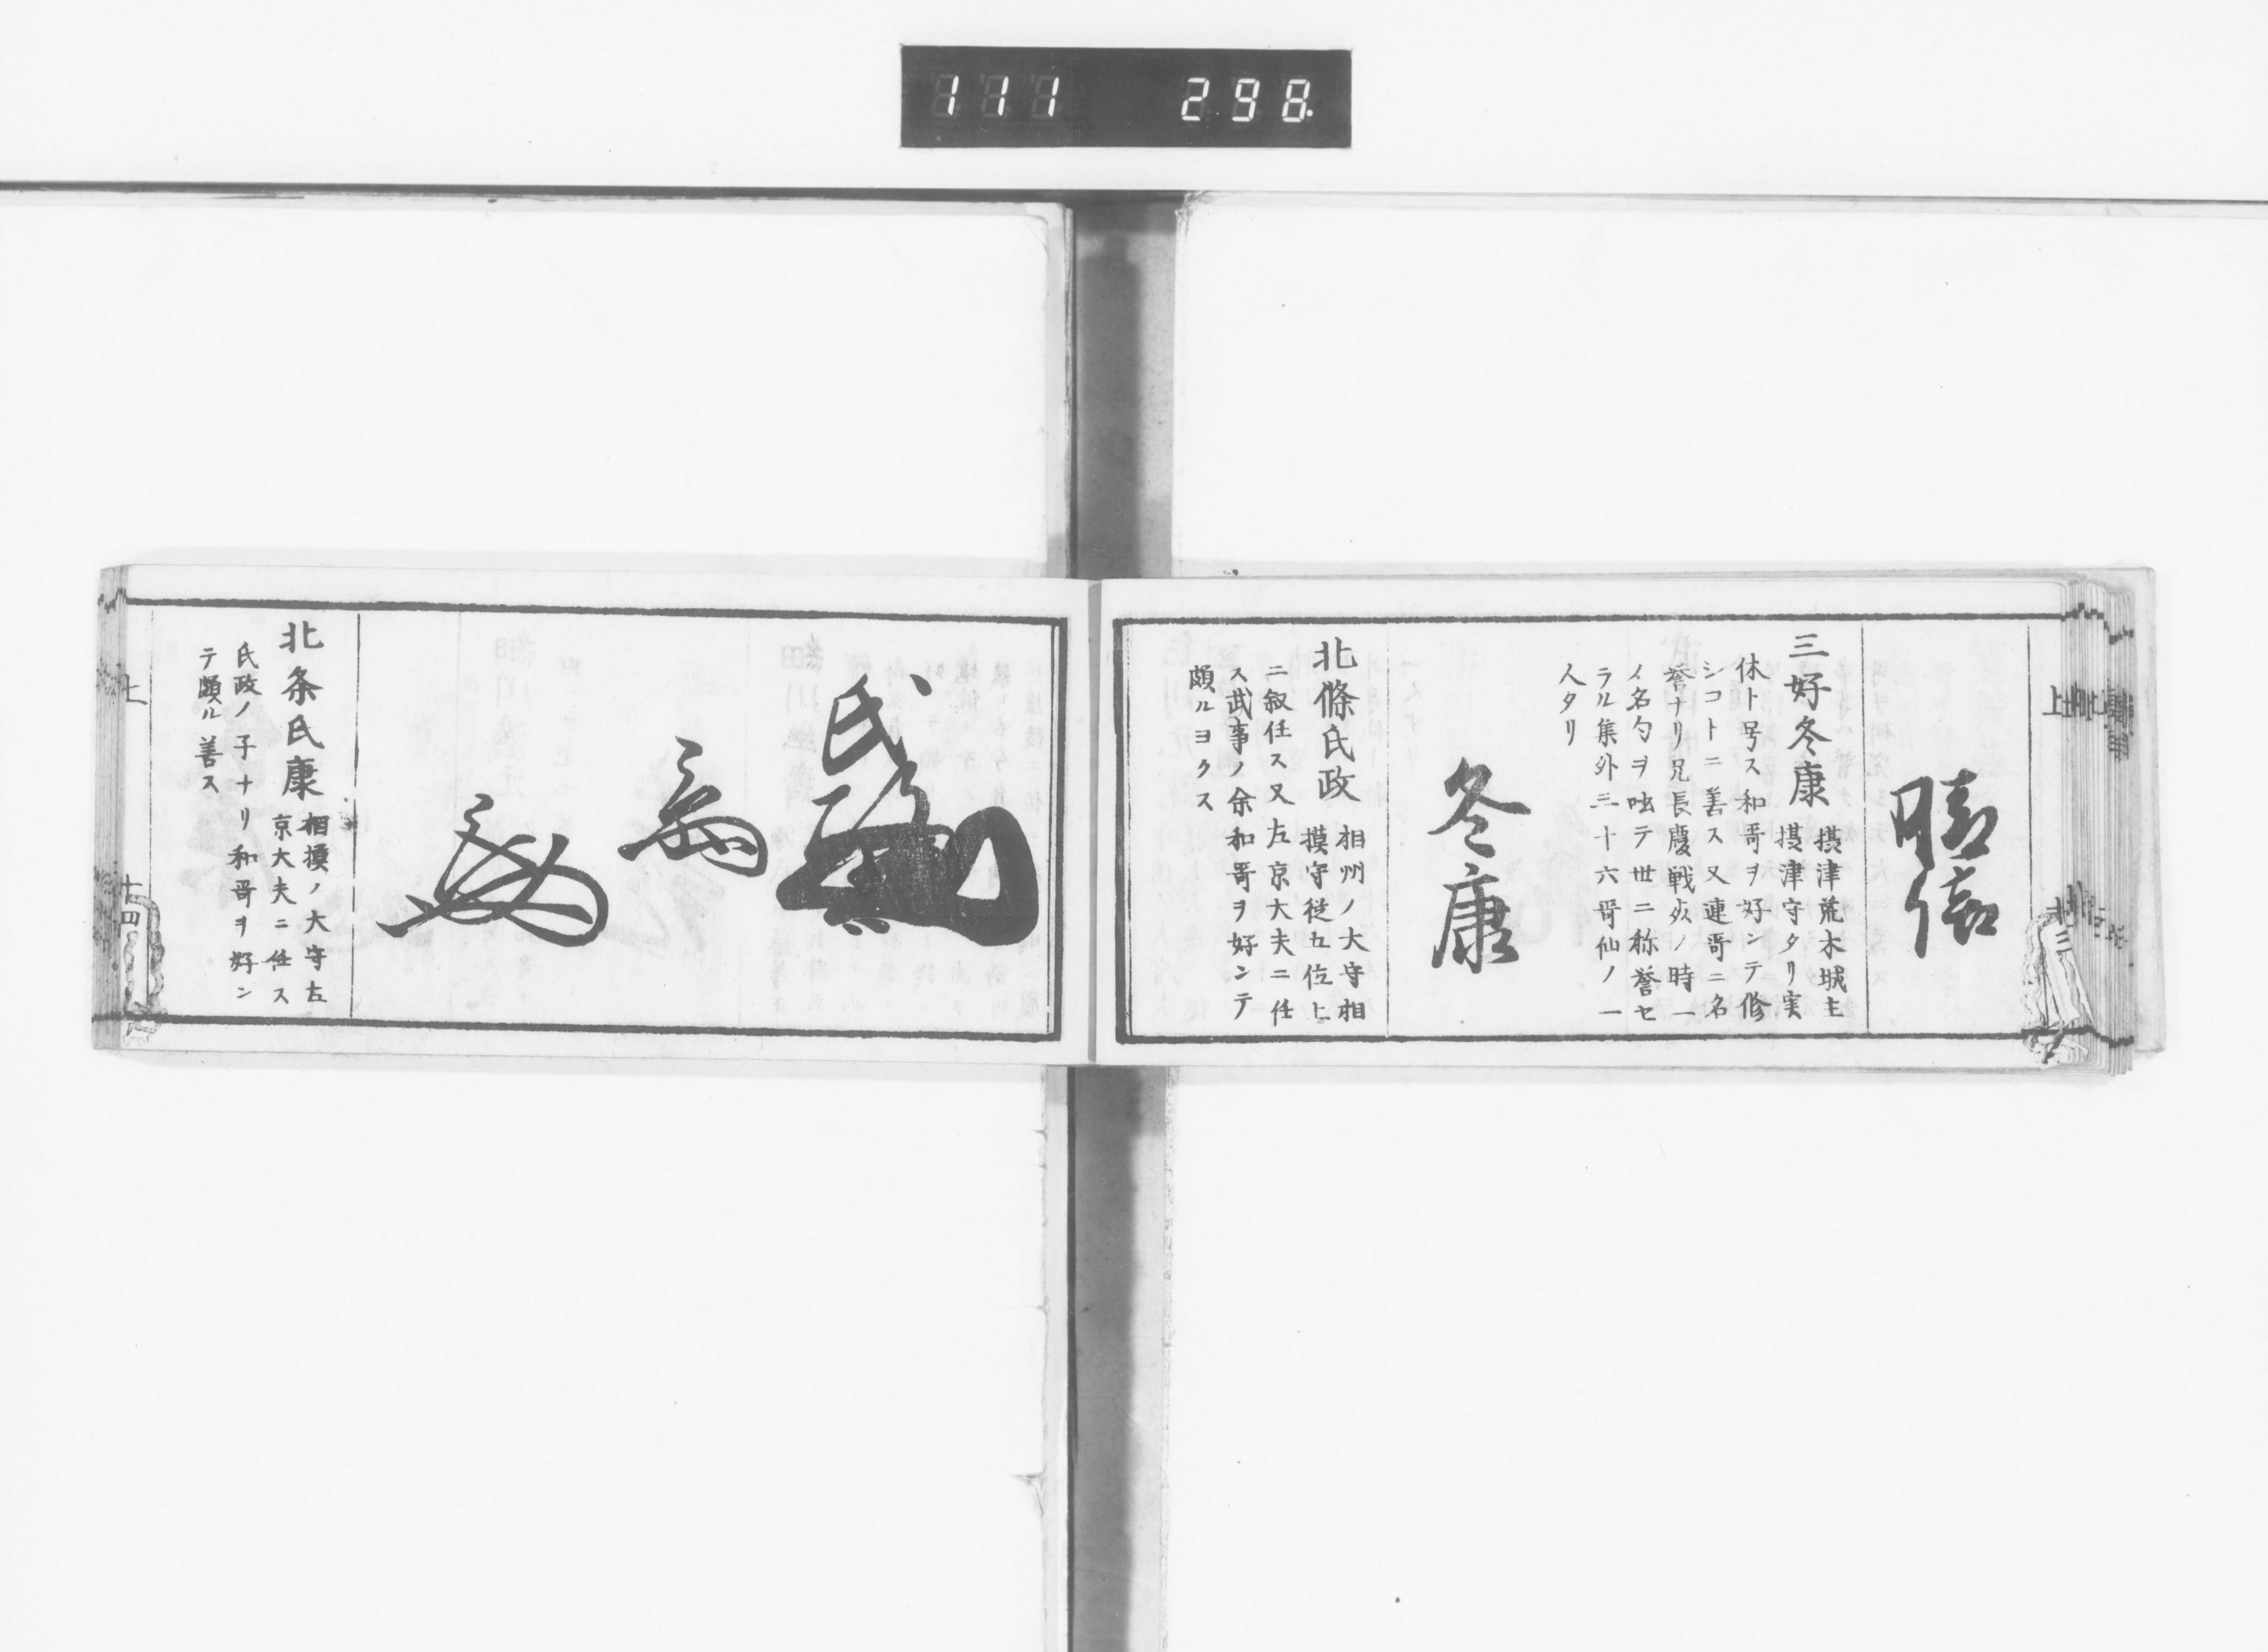 111 298
上
晴信
三好冬康 摂津荒木城主
摂津守タリ実
休ト号ス和哥ヲ好ンテ修
シコトニ善ス又連哥ニ名
誉ナリ兄長慶戦死ノ時一
ノ名句ヲ咄テ世ニ称誉セ
ラル集外三十六哥仙ノ一
人タリ
冬康
北條氏政 相州ノ大守相
摸守従五位上
ニ叙任ス又左京大夫ニ任
ス武事ノ余和哥ヲ好ンテ
頗ルヨクス
氏政
北条氏康 相摸ノ大守左
京大夫ニ任ス
氏政ノ子ナリ和哥ヲ好ン
テ頗ル善ス
上
十四